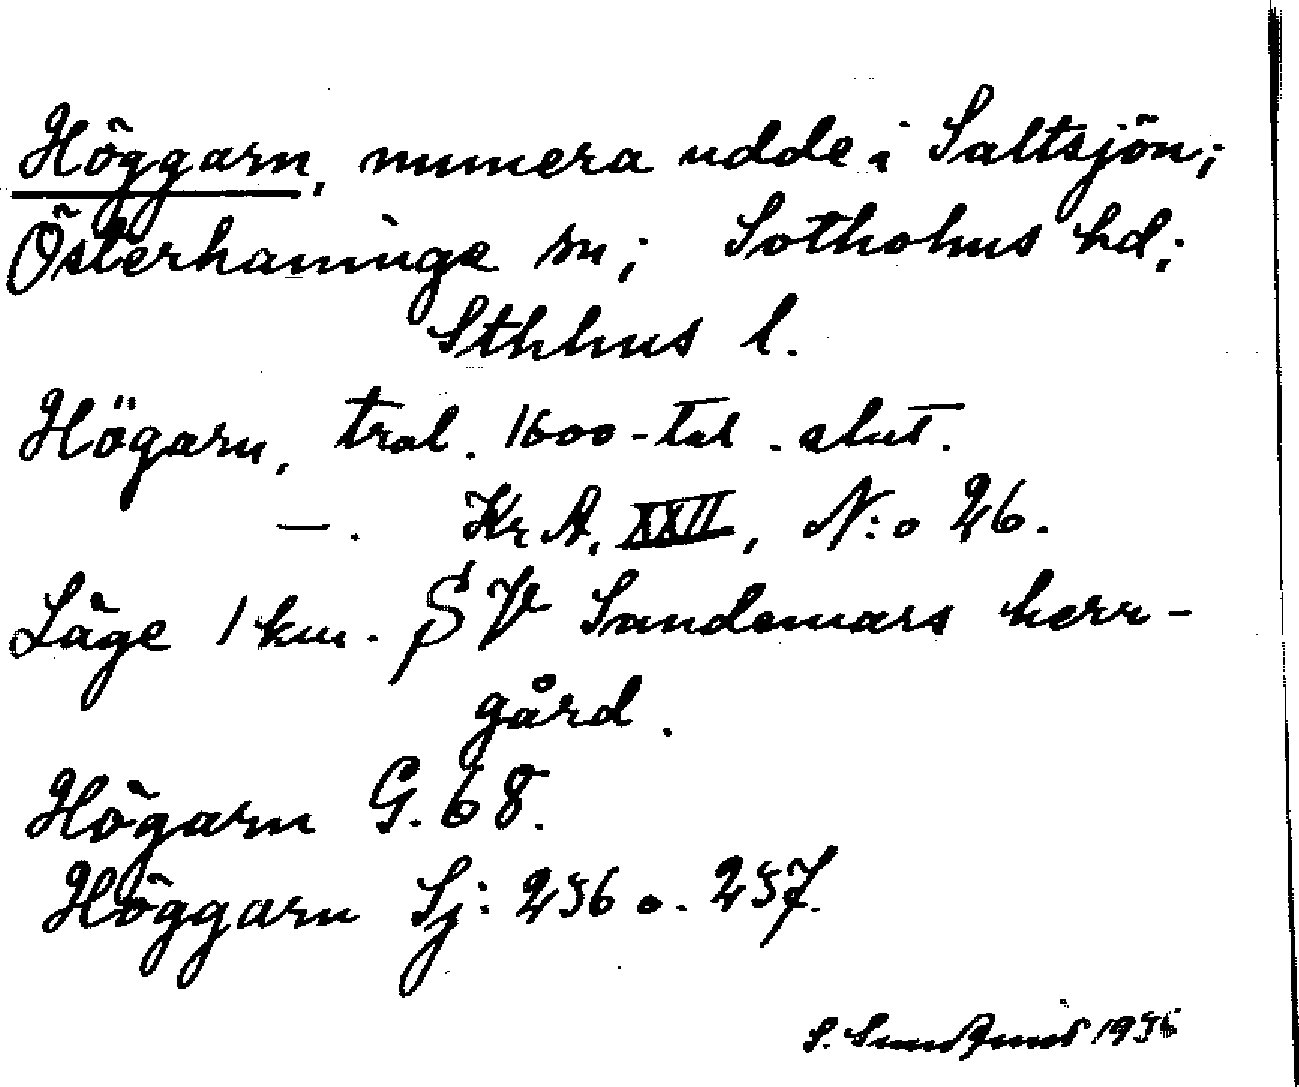 Höggarn, numera udde i Saltsjön;
Österhaninge sn; Sotholms hd;
Sthlms l.
Högarn, trol. 1600-tal. slut.
—. Kr A, XXII, N:o 26.
Läge 1 km. SV Sandemars herr-
gård.
Högarn G. 68.
Höggarn Sj: 256 o. 257.
S. Sundquist 1935